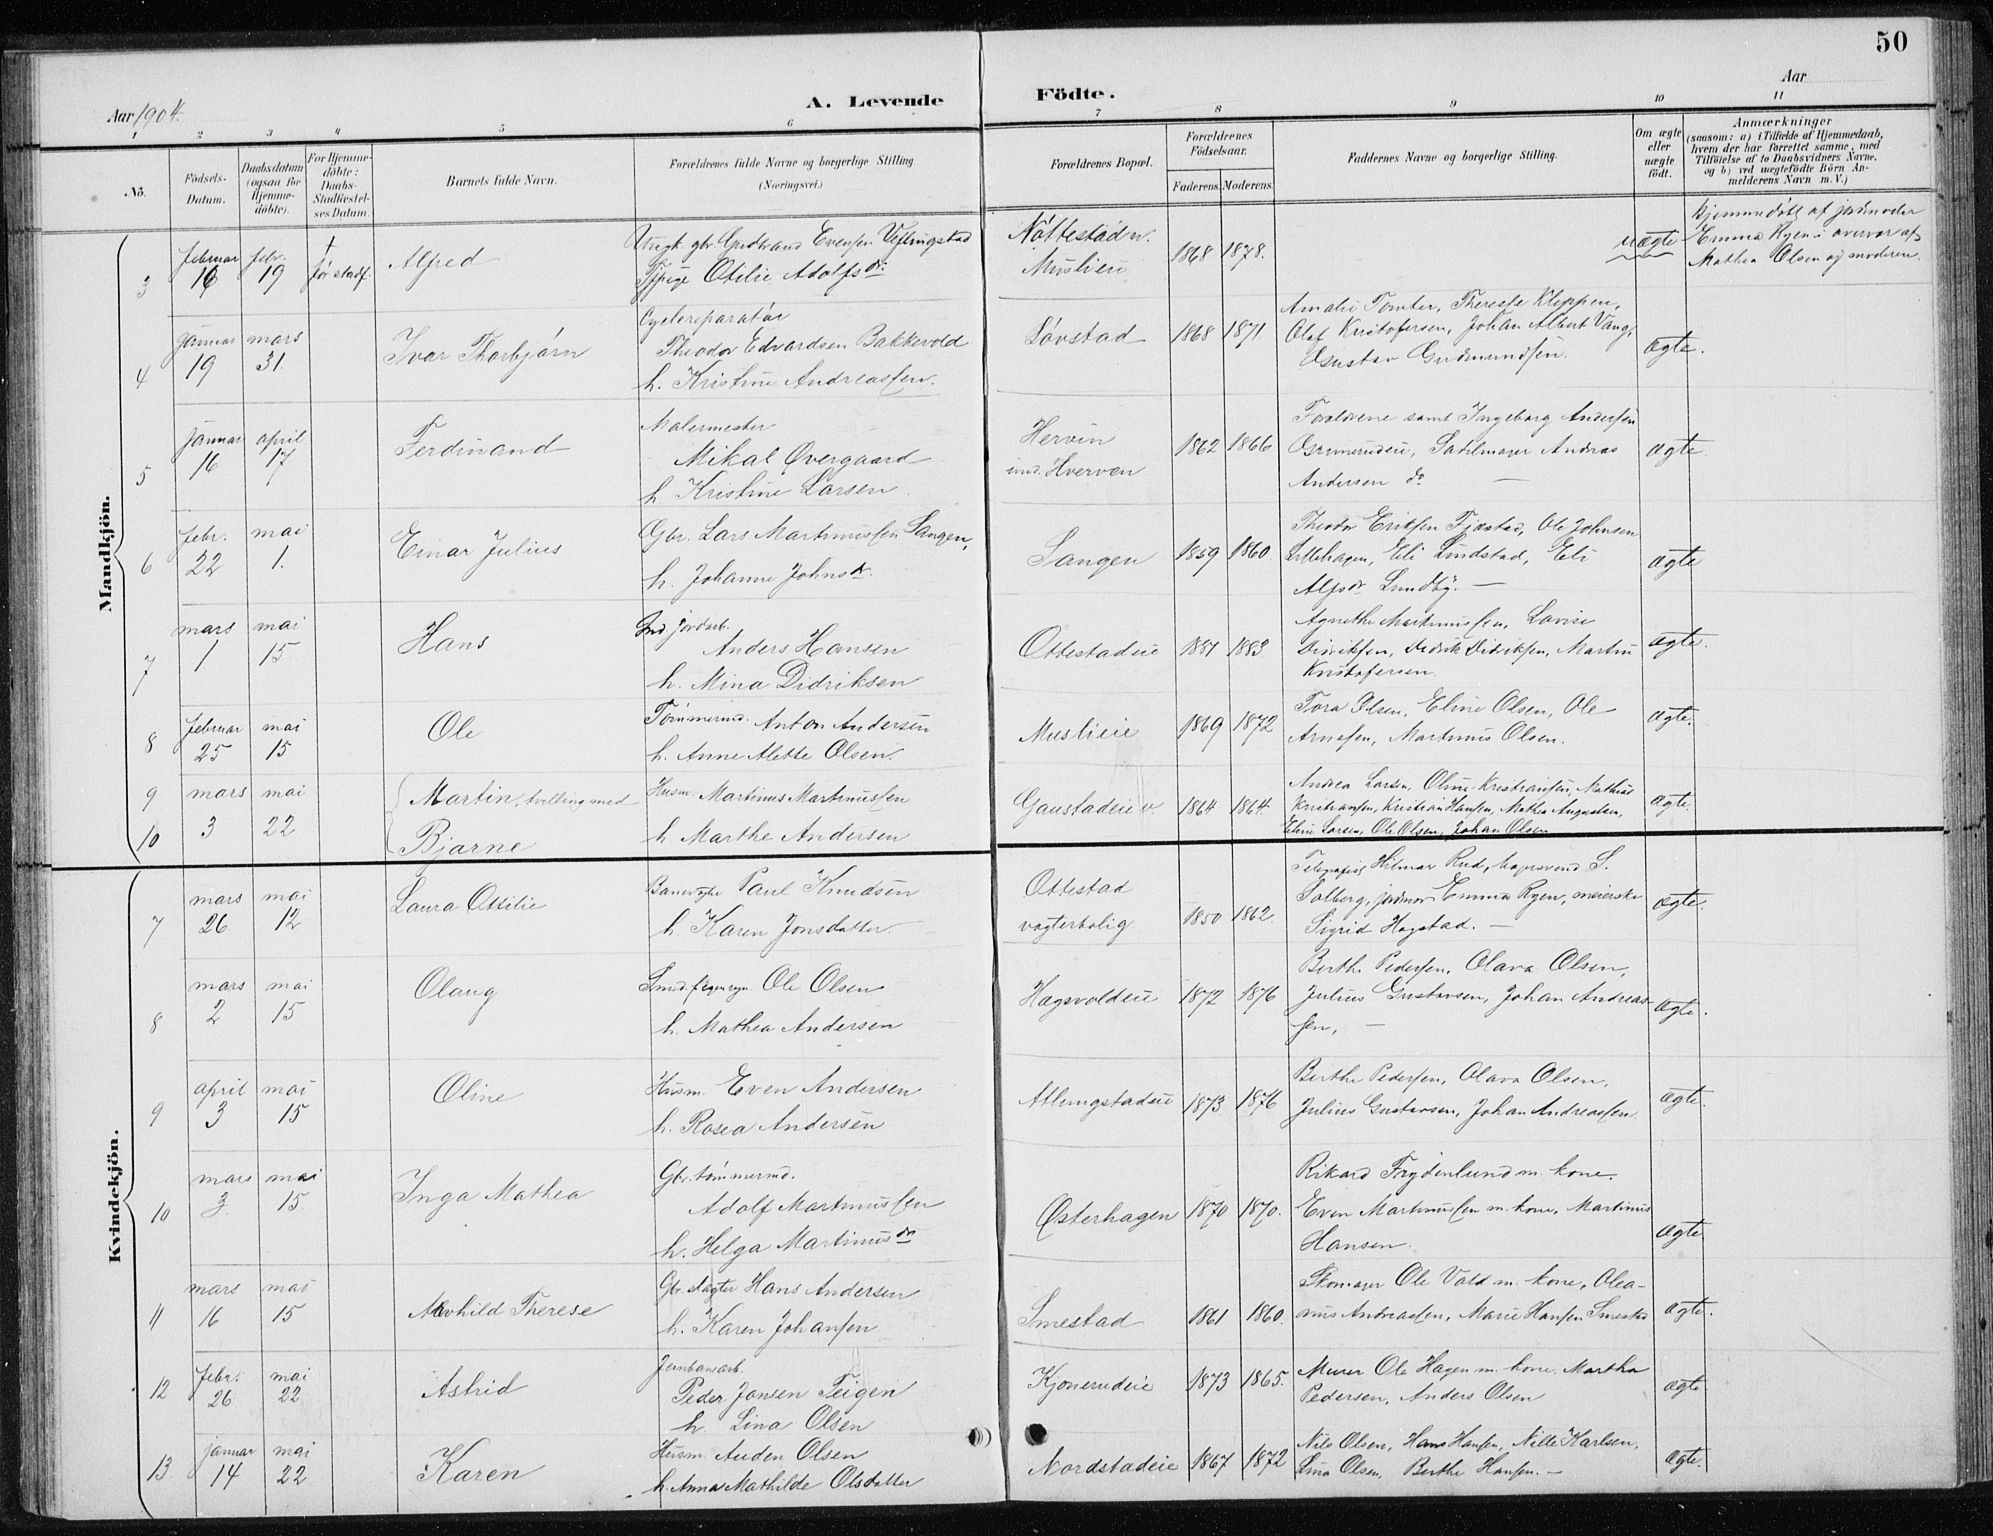 50
Aar 1904.
A. Levende Födte.
Aar
1 2 3 4 5 6 7 8 9 10 11
No.
Födsels-Datum.
Daabsdatum (ogsaa for Hjemme-döbte).
For Hjemme-döbte: Daabs-Stadfæstel-ses Datum.
Barnets fulde Navn.
Forældrenes fulde Navne og borgerlige Stilling. (Næringsvei.)
Forældrenes Bopæl.
Forældrenes Födselsaar.
Faderens. Moderens.
Faddernes Navne og borgerlige Stilling.
Om ægte eller uægte födt.
Anmærkninger
(saasom: a) i Tilfælde af Hjemmedaab, hvem der har forrettet samme, med Tilföielse af to Daabsvidners Navne, og b) ved uægtefödte Börn An-melderens Navn m. V.)
Mandkjön.
3 februar 16 febr. 19 † før stadf. Alfred
Ungk. gbr. Gudbrand Evensen
Pige Otilie Adolfsdr.
Nøttestad v. Muslieie 1868 1878. uægte
Hjemmedøbt af jordmoder
Emma Ryen i overvær af
Mathea Olsen og moderen.
4 januar 19 mars 31. Ivar Thorbjørn
Cyclereparatør
Theodor Edvardsen Bakkevold
h. Kristine Andreassen.
Løvstad 1868 1871.
Amalie Tomter, Therese Kleppen,
Olaf Kristofersen, Johan Albert Vang,
Gustav Gudmundsen. ægte.
5 januar 16 april 17 Ferdinand
Malermester
Mikal Øvergaard
h Kristine Larsen.
Hervin
ind. Hverven 1862 1866
Forældrene samt Ingeborg Andersen
Sadelmager Andreas
Andersen do — ægte.
6 febr. 22 mai 1. Einar Julius
Gbr. Lars Martinussen Sangen,
h. Johanne Johnsdr.
Sangen 1859 1860
Theodor Eriksen Fjæstad, Ole Johnsen
Lillehagen, Eli Lindstad, Eli
Alfsdr Lundby. — ægte
7 mars 1 mai 15 Hans
Ind. jordarb.
Anders Hansen
h. Mina Didriksen
Ottestadeie 1881 1883.
Agnethe Martinussen, Lovise
Didriksen, Didrik Didriksen, Martin
Kristofersen. ægte.
8 februar 25 mai 15 Ole
Tømmermd. Anton Andersen
h. Anne Alette Olsen.
Muslieie 1869 1872
Tora Olsen, Eline Olsen, Ole
Arnesen, Martinus Olsen. ægte.
9 10 mars 3 mai 22 Martin, tvilling med
Bjarne
Husm. Martinus Martinussen
h. Marthe Andersen
Gaustadeie v. 1864 1864.
Andrea Larsen, Oline Kristiansen, Mathias
Kristiansen, Kristian Hansen, Mathea Augustsen,
Eline Larsen, Ole Olsen, Johan Olsen ægte.
Kvindekjön.
7 mars 26 mai 12 Laura Ottilie
Banevogter Paul Knudsen
h Karen Jonsdatter.
Ottestad
vogterbolig 1850 1862.
Telegrafist Hilmar Rud, bagersvend S.
Solberg, jordmor Emma Ryen, meierske
Sigrid Hogstad. — ægte.
8 mars 2 mai 15 Olaug
Ole Olsen
h. Mathea Andersen
Hagsvoldeie 1872 1876
Berthe Pedersen, Olava Olsen,
Julius Gustavsen, Johan Andreas-
sen, — ægte.
9 april 3 mai 15 Oline
Husm. Even Andersen
h. Rosea Andersen
Atlungstadeie 1873 1876
Berthe Pedersen, Olava Olsen,
Julius Gustavsen, Johan Andreassen. ægte.
10 mars 3. mai 15. Inga Mathea
Gbr. tømmermd.
Adolf Martinussen
h. Helga Martinusdr
Østerhagen 1870 1870.
Rikard Frydenlund m. kone.
Even Martinussen m. kone, Martinus
Hansen. ægte
11 mars 16 mai 15 Therese
Gbr. slagter Hans Andersen
h. Karen Johansen
Smestad 1861 1860.
Skomager Ole Vold m. kone, Olea-
nus Andreassen, Marie Hansen Smestad ægte.
12 febr. 26 mai 22 Astrid
Jernbanearb.
Peder Jonsen Teigen
h Lina Olsen
Kjonerudeie 1873 1865.
Murer Ole Hagen m. kone. Martha
Pedersen, Anders Olsen ægte.
13 januar 14 mai 22 Karen
Husm. Auden Olsen
h. Anna Mathilde Olsdatter
Nordstadeie 1867 1872
Nils Olsen, Hans Hansen, Nille Karlsen,
Lina Olsen, Berthe Hansen. — ægte.